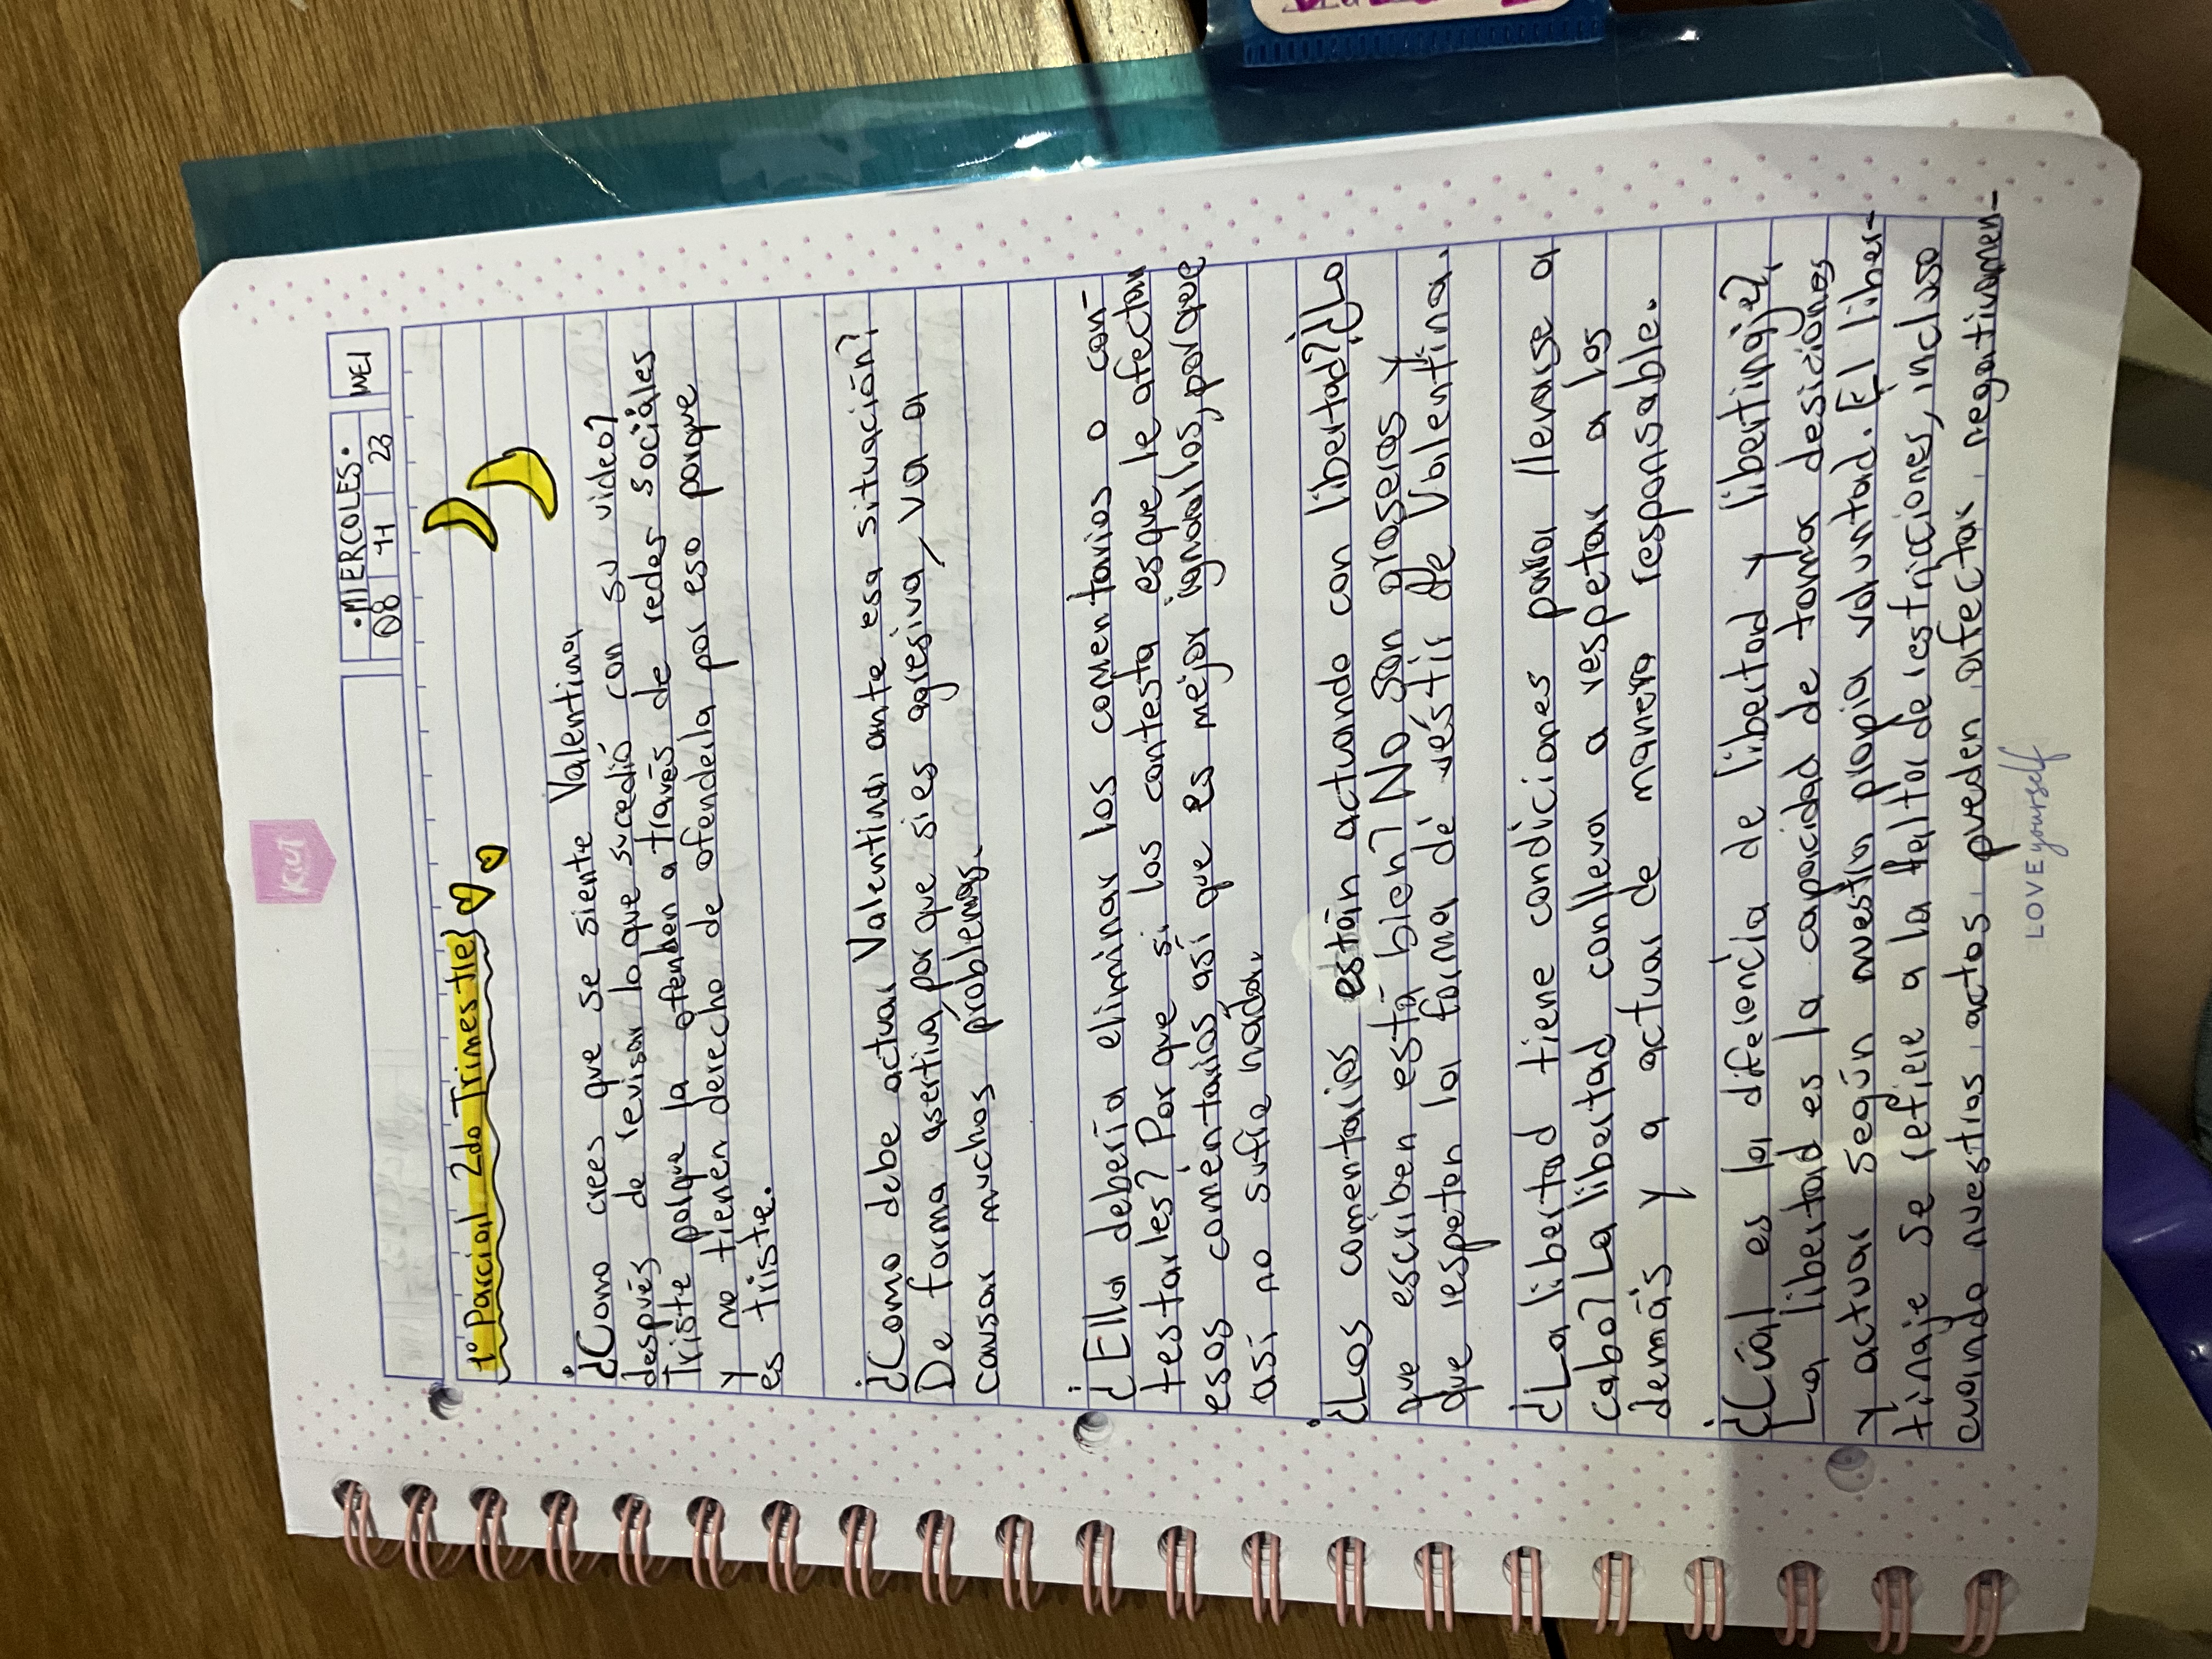 Kiut
•MIERCOLES•
08 11 23 WEI
1° Parcial 2do Trimestre
¿Como crees que se siente Valentina
después de revisar lo que sucedió con su video?
Triste porque la ofenden a través de redes sociales
y no tienen derecho de ofenderla por eso porque
es triste.
¿Como debe actuar Valentina ante esa situación?
De forma asertiva, por que si es agresiva, va a
causar muchos problemas.
¿Ella debería eliminar los comentarios o con-
testarles? Por que si los contesta es que le afectan
esos comentarios así que es mejor ignoralos, por que
así no sufre nada.
¿Los comentarios están actuando con libertad? ¿Lo
que escriben está bien? No son groseros y
que respeten la forma de vestir de Valentina.
¿La libertad tiene condiciones para llevarse a
cabo? La libertad conlleva a respetar a los
demás y a actuar de manera responsable.
¿Cúal es la diferencia de libertad y libertinaje?
La libertad es la capacidad de tomar desiciones
y actuar según nuestra propia voluntad. El liber-
tinaje se refiere a la falta de restricciones, incluso
cuando nuestros actos pueden afectar negativamen-
LOVE yourself